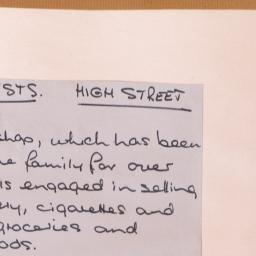 STS. HIGH STREET
shop, which has been
family for over
is engaged in selling
cigarettes and
groceries and